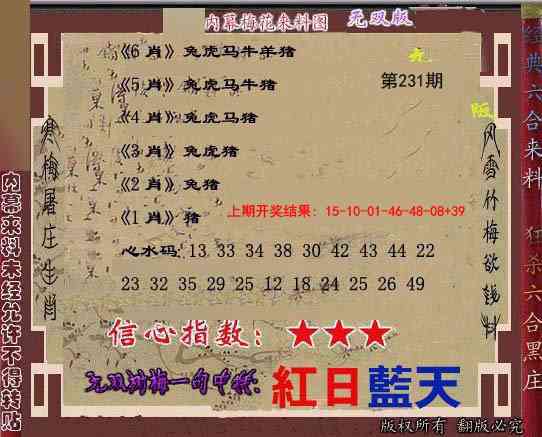 内幕梅花来料图 无双版
《6 肖》兔虎马牛羊猪
《5 肖》兔虎马牛猪
《4 肖》兔虎马猪
《3 肖》兔虎猪
《2 肖》兔猪
《1 肖》猪
第231期
上期开奖结果: 15-10-01-46-48-08+39
心水码: 13 33 34 38 30 42 43 44 22
23 32 35 29 25 12 18 24 25 26 49
信心指数: ★★★
无双浏梅一句中特: 紅日藍天
版权所有 翻版必究
寒梅屠庄生肖
风雪竹梅欲钱料
内幕来料未经允许不得转贴
经典六合来料 狂杀六合黑庄